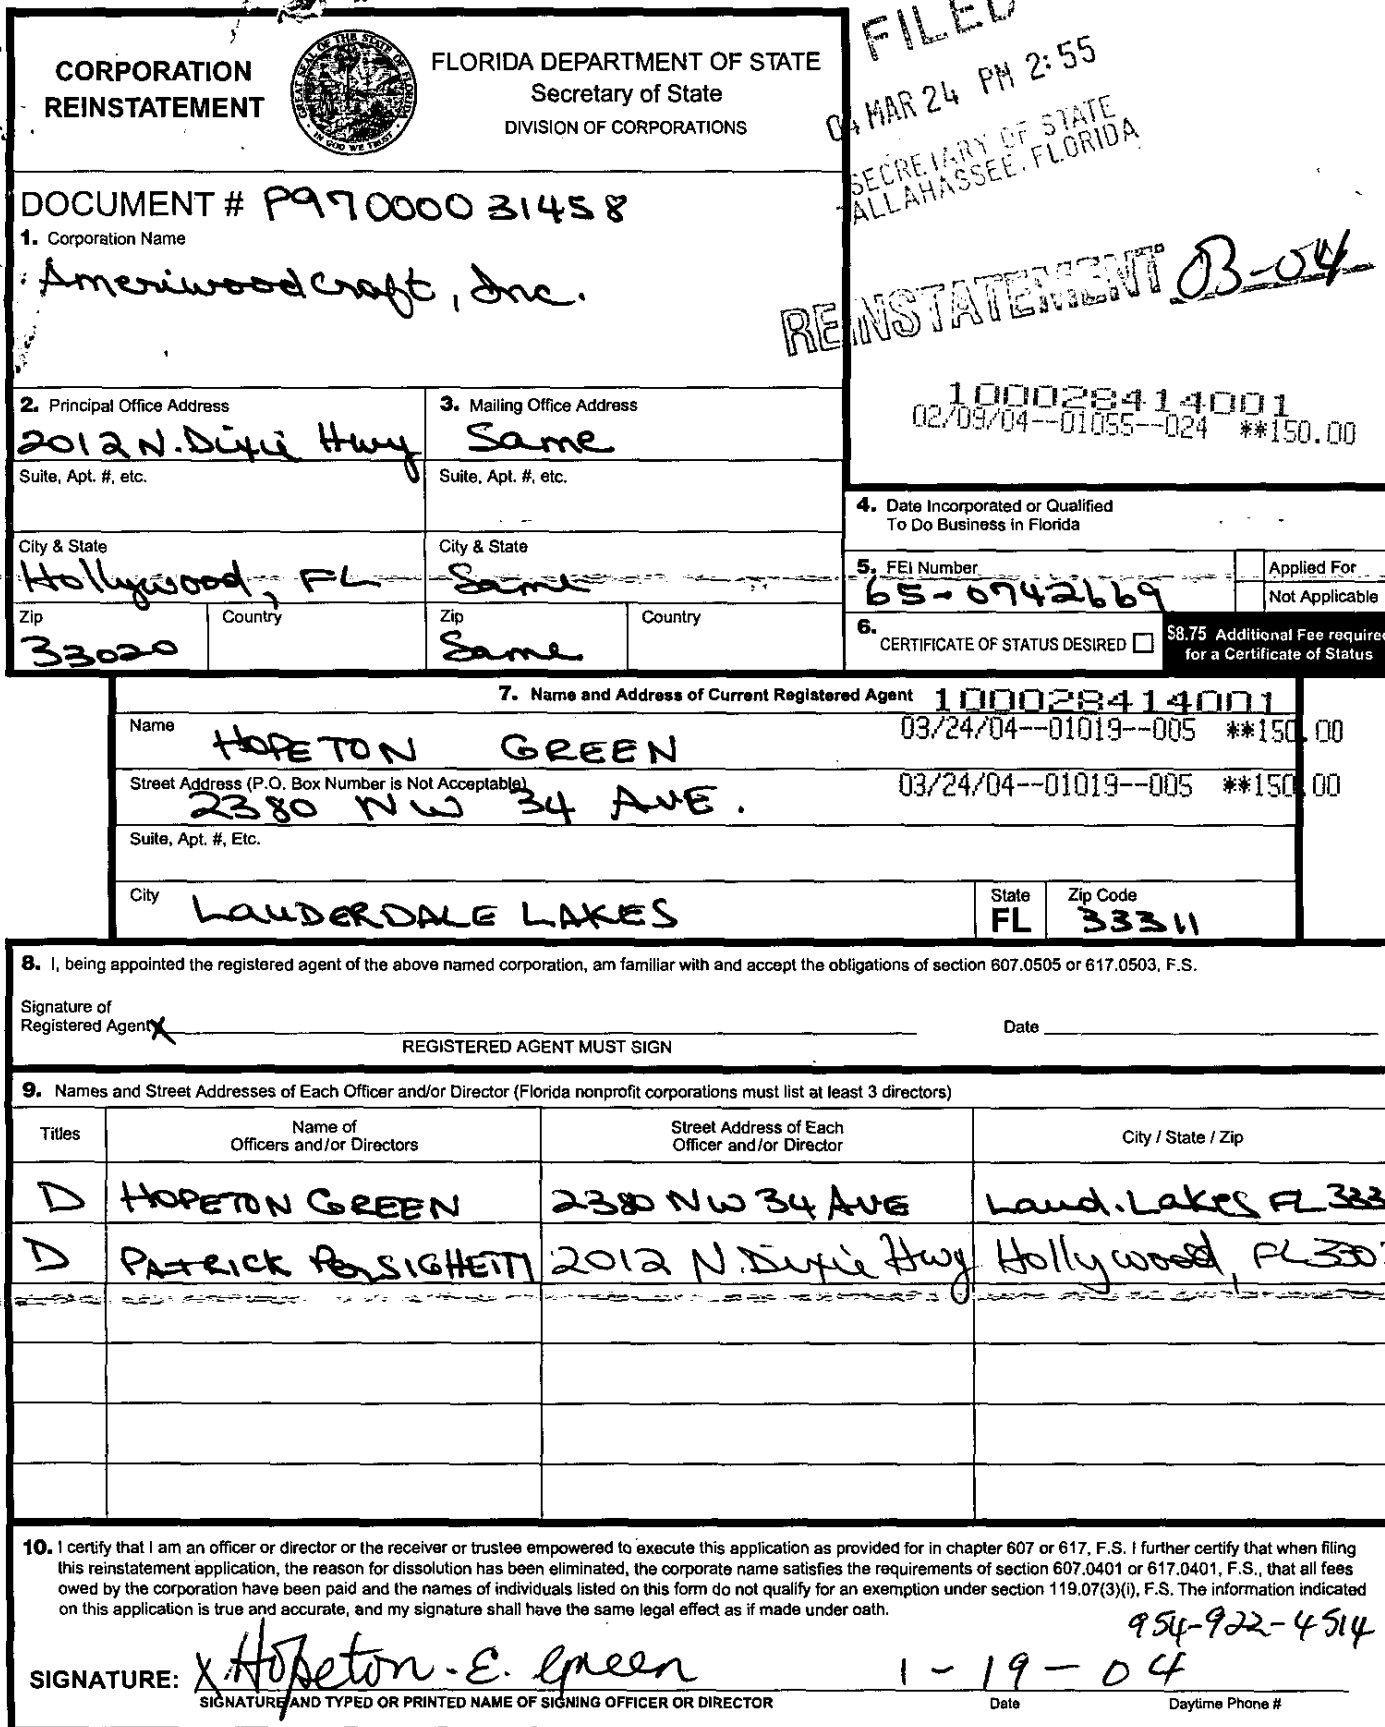 CORPORATION
REINSTATEMENT
GREAT SEAL OF THE STATE OF FLORIDA
IN GOD WE TRUST
FLORIDA DEPARTMENT OF STATE
Secretary of State
DIVISION OF CORPORATIONS
FILED
04 MAR 24 PM 2:55
SECRETARY OF STATE
TALLAHASSEE, FLORIDA
DOCUMENT # P97000031458
1. Corporation Name
Ameriwoodcraft, Inc.
REINSTATEMENT 03-04
100028414001
02/09/04--01055--024 **150.00
2. Principal Office Address
2012 N. Dixie Hwy
3. Mailing Office Address
Same
Suite, Apt. #, etc.
Suite, Apt. #, etc.
4. Date Incorporated or Qualified
To Do Business in Florida
City & State
Hollywood, FL
City & State
Same
5. FEI Number
65-0742669
Applied For
Not Applicable
Zip
33020
Country
Zip
Same
Country
6. CERTIFICATE OF STATUS DESIRED
$8.75 Additional Fee required
for a Certificate of Status
7. Name and Address of Current Registered Agent
100028414001
03/24/04--01019--005 **150.00
Name
HOPETON GREEN
03/24/04--01019--005 **150.00
Street Address (P.O. Box Number is Not Acceptable)
2380 NW 34 AVE.
Suite, Apt. #, Etc.
City
LAUDERDALE LAKES
State
FL
Zip Code
33311
8. I, being appointed the registered agent of the above named corporation, am familiar with and accept the obligations of section 607.0505 or 617.0503, F.S.
Signature of
Registered Agent X
Date
REGISTERED AGENT MUST SIGN
9. Names and Street Addresses of Each Officer and/or Director (Florida nonprofit corporations must list at least 3 directors)
Titles
Name of
Officers and/or Directors
Street Address of Each
Officer and/or Director
City / State / Zip
D HOPETON GREEN 2380 NW 34 AVE Laud. Lakes FL 333
D PATRICK PERSIGHETTI 2012 N. Dixie Hwy Hollywood, FL 330
10. I certify that I am an officer or director or the receiver or trustee empowered to execute this application as provided for in chapter 607 or 617, F.S. I further certify that when filing
this reinstatement application, the reason for dissolution has been eliminated, the corporate name satisfies the requirements of section 607.0401 or 617.0401, F.S., that all fees
owed by the corporation have been paid and the names of individuals listed on this form do not qualify for an exemption under section 119.07(3)(i), F.S. The information indicated
on this application is true and accurate, and my signature shall have the same legal effect as if made under oath.
954-922-4514
SIGNATURE: X Hopeton. E. Green 1-19-04
SIGNATURE AND TYPED OR PRINTED NAME OF SIGNING OFFICER OR DIRECTOR
Date
Daytime Phone #